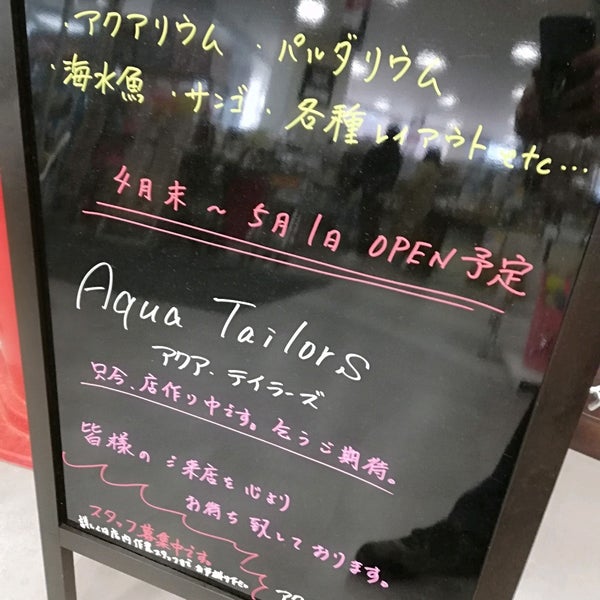 ・アクアリウム ・パルダリウム
・海水魚 ・サンゴ・各種レイアウト etc…
4月末 ~ 5月1日 OPEN予定
Aqua Tailors
アクア・テイラーズ
只今、店作り中です。乞うご期待。
皆様のご来店を心より
お待ち致しております。
スタッフ募集中です。
詳しくは店内作業スタッフまでお声掛け下さい。
アク